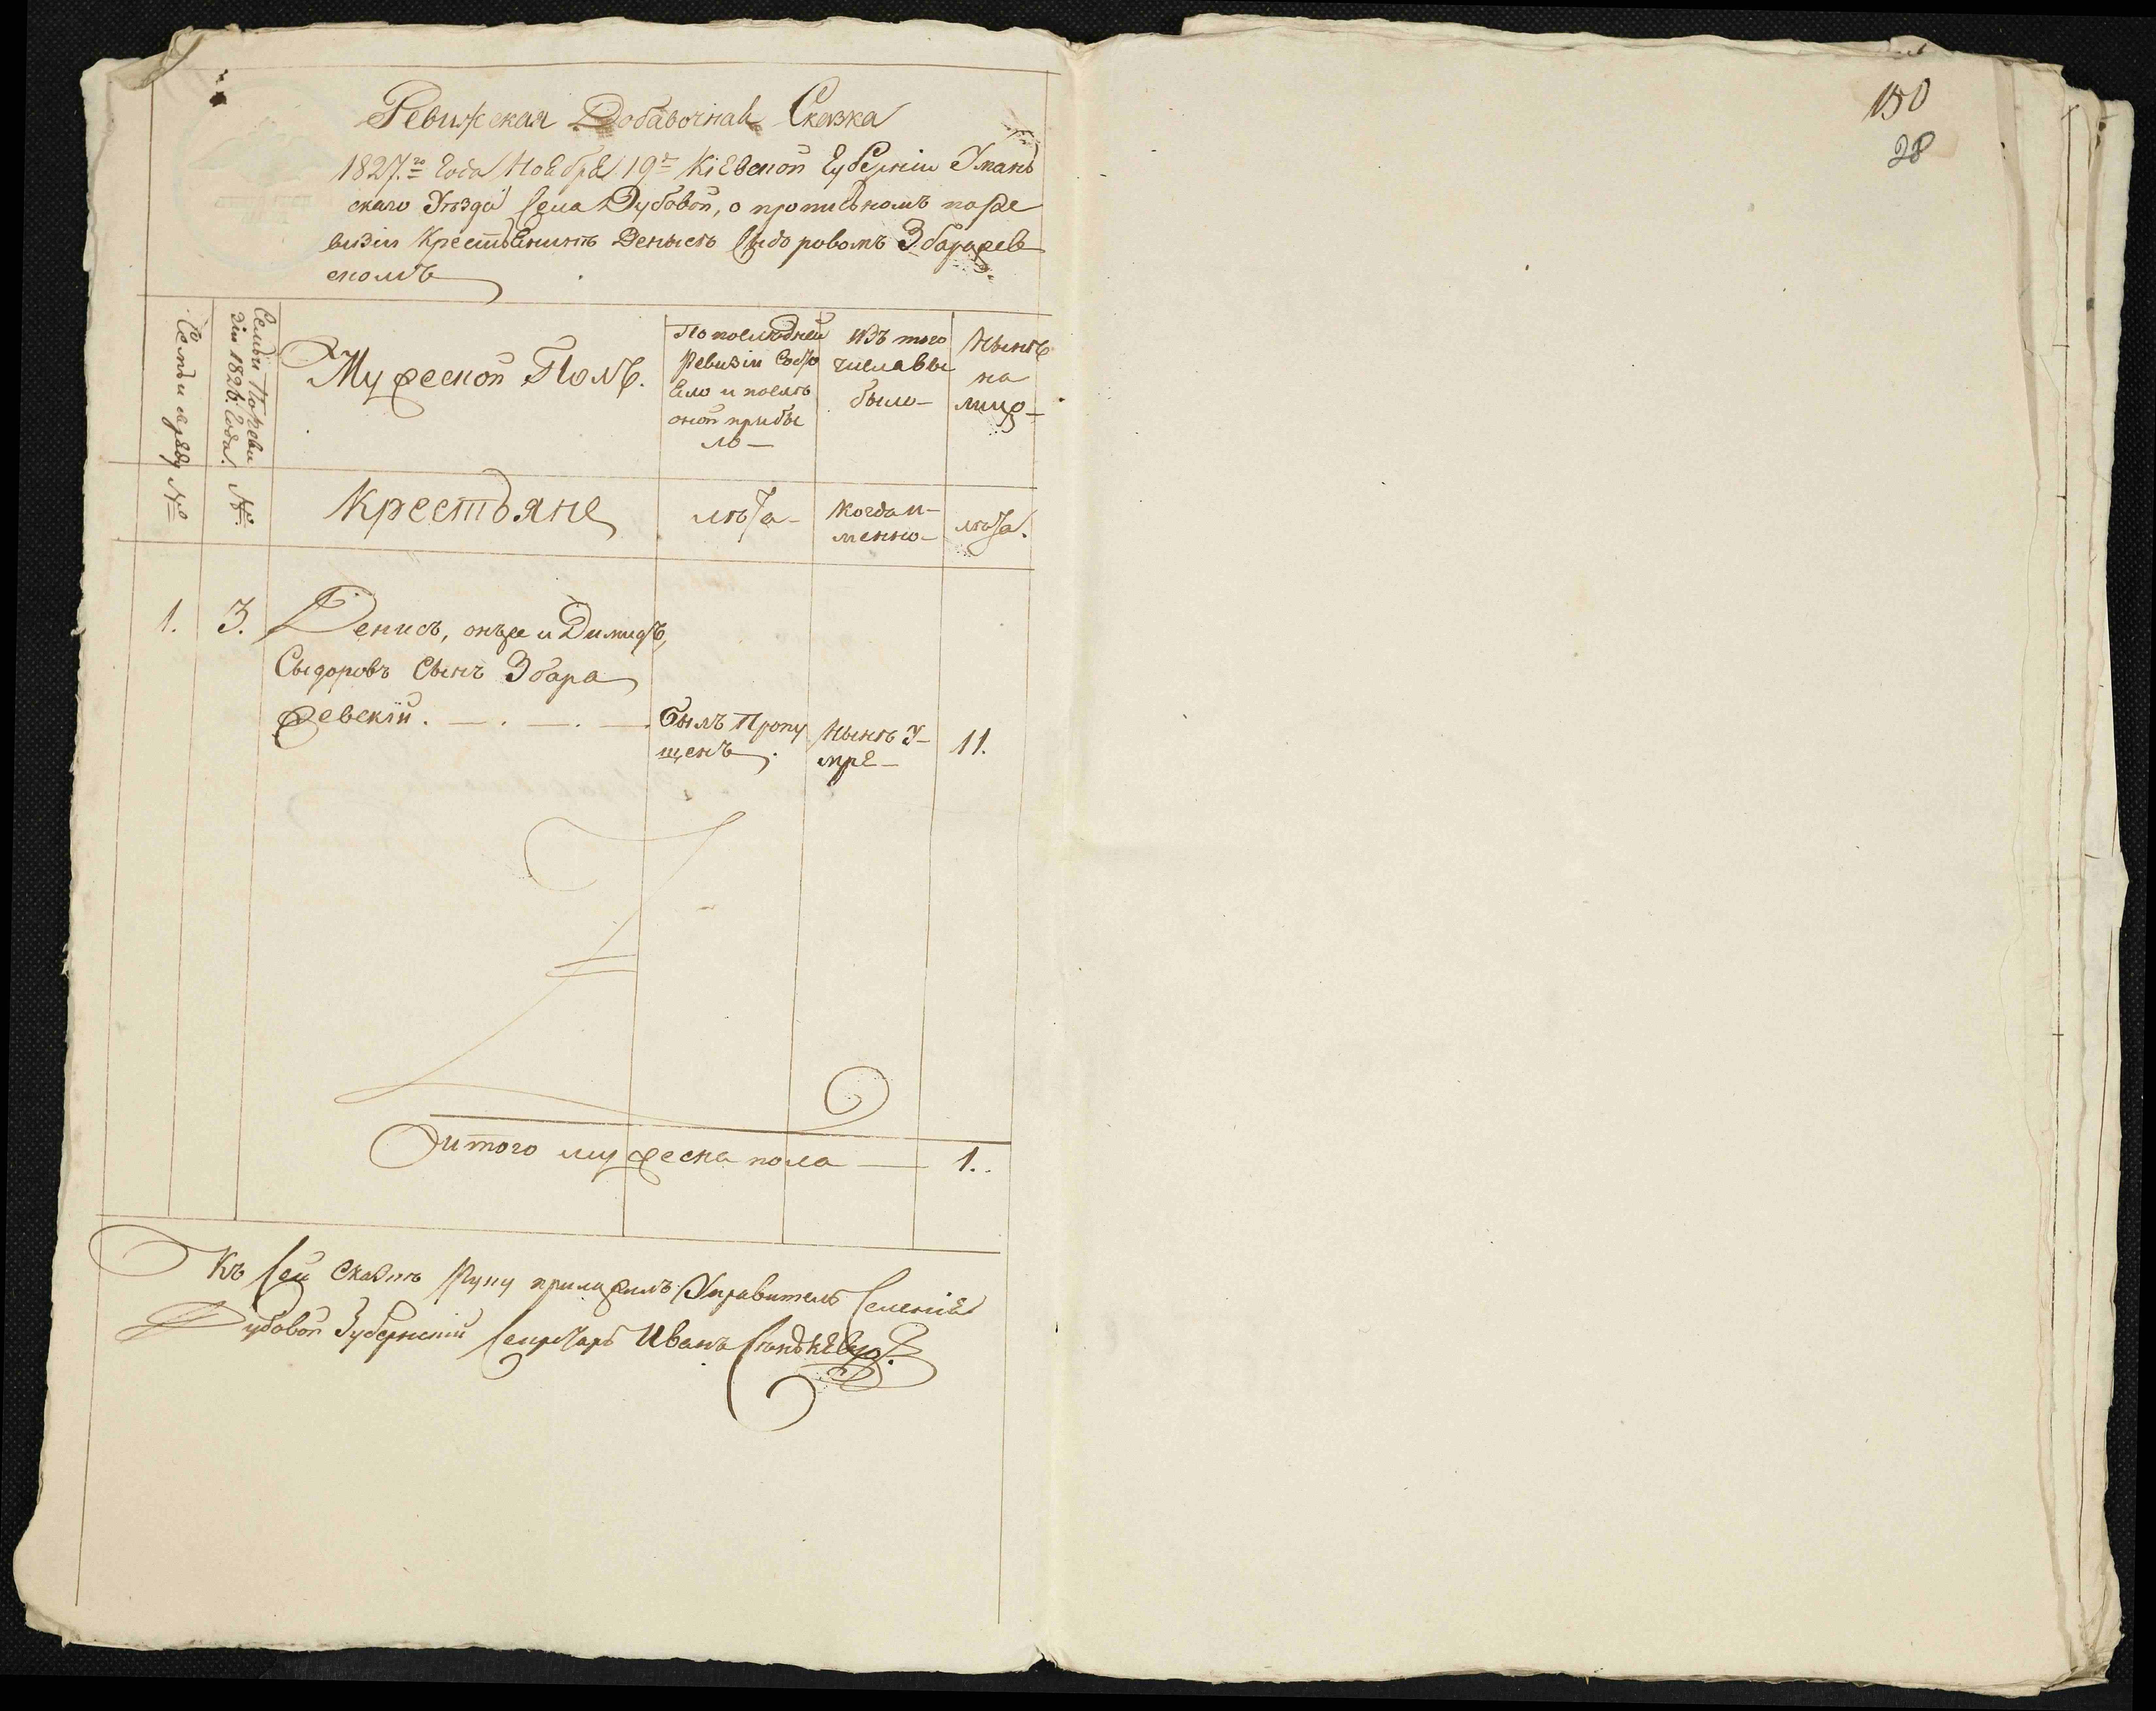 Ревижская Добавочная Сказка
1827.го года Ноября 19го Кіевской Губерніи Умань
скаго Уѣзда Села Дубовой, о прописномъ по Ре
визіи Крестьянинѣ Денысѣ Сыдоровомъ Збаражев
скомъ
Семьи по ряду №
Семьи По Реви
зіи 1826. Года. №.
Мужеской Полъ.
По последней
Ревизіи Состо
яло и послѣ
оной прибы
ло —
Изъ того
числа вы
было —
Нынѣ
на
лицо —
Крестьяне
лѣта —
когда и-
менно —
лѣта.
1. 3. Денисъ, онъже и Димидъ,
Сыдоровъ Сынъ Збара
жевскій.
былъ Пропу
щенъ.
Нынѣ У-
мре —
11.
итого мужеска пола — 1..
Къ Сей Сказкѣ Руку приложилъ Управитель Селенія
Дубовой Губернский Секретарь Иванъ
150
28